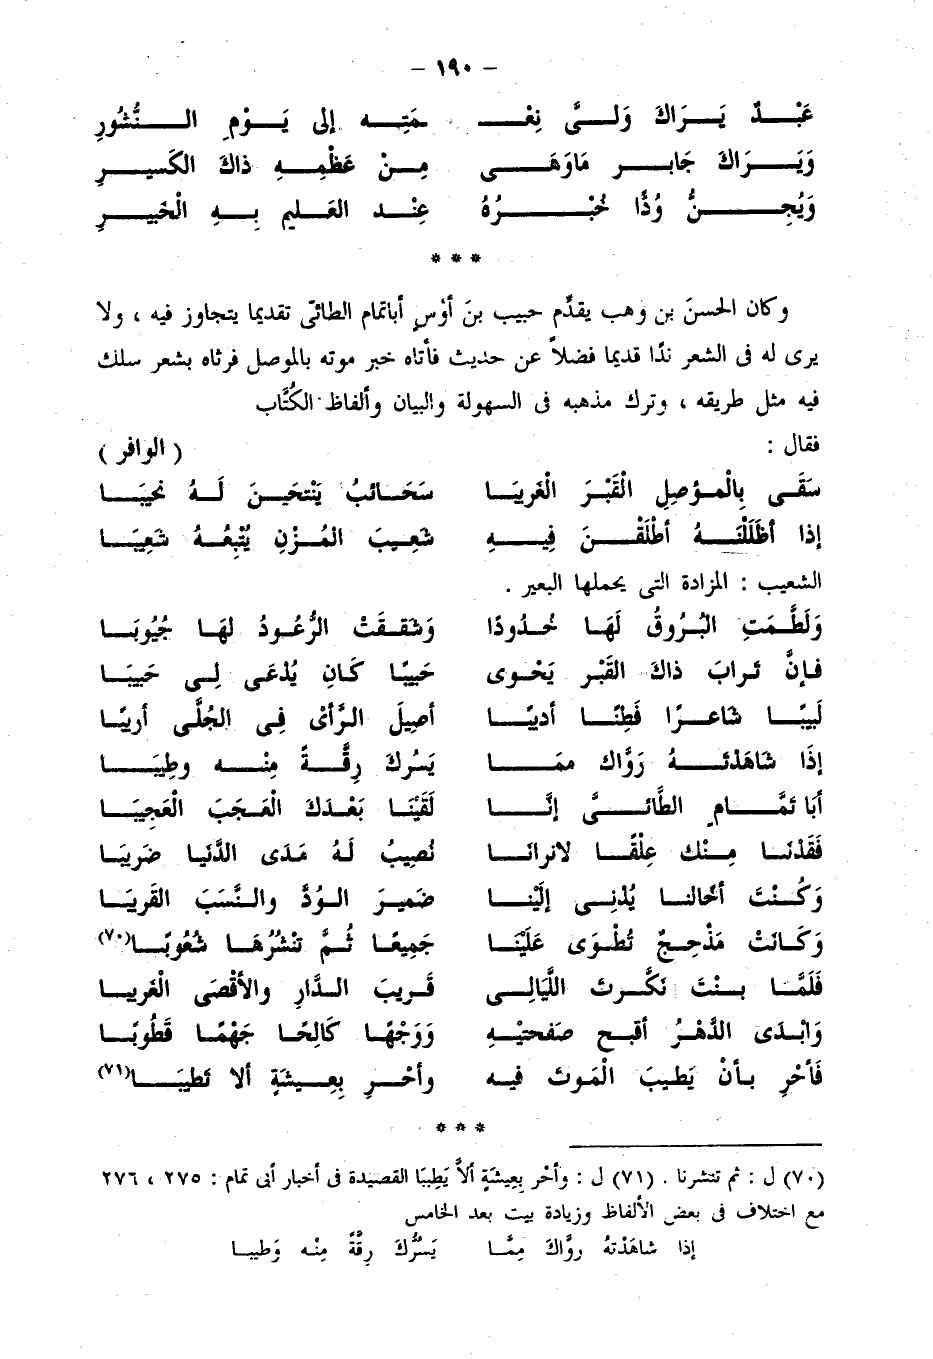 – ١٩٠ –
عَبْدٌ يَرَاكَ وَلىَّ نِعْـ ـمَتِه إلى يَوْمِ النُّشُورِ
وَيَرَاكَ جَابر مَاوَهَى مِنْ عَظْمِهِ ذاكَ الكَسيرِ
وَيُجِنُّ وُدًّا خُبْرُهُ عِنْد العَليم بِهِ الْخَبيرِ
* * *
وكان الحسنَ بن وهب يقدَّم حبيب بنَ أوْسٍ أباتمام الطائىّ تقديما يتجاوز فيه ، ولا
يرى له فى الشعر ندًا قديما فضلاً عن حديث فأتاه خبر موته بالموصل فرثاه بشعر سلك
فيه مثل طريقه ، وترك مذهبه فى السهولة والبيان وألفاظ الكُتَّاب
فقال : ( الوافر )
سَقَى بِالْموْصلِ الْقَبْرَ الْغَريبَا سَحَائبُ يَنْتحَينَ لَهُ نحيبَا
إذا أظَلَلْنَهُ أطْلَقْنَ فِيهِ شَعِيبَ المُزْنِ يُتْبِعُهُ شَعِيبَا
الشعيب : المزادة التى يحملها البعير .
وَلَطَّمَتِ البُروقُ لَهَا خُدُودًا وَشَققَتْ الرُّعُودُ لهَا جُيُوبَا
فإنَّ تَرابَ ذاكَ القَبْر يَحْوى حَبيًا كَانِ يُدْعَى لِى حَبيبَا
لَبيبًا شَاعرًا فَطِنًا أديبًا أصِيلَ الرَّأىْ فِى الجُلَّى أريبًا
إذَا شَاهَدْتَهُ رَوَّاك ممَا يَسُرُكَ رِقَّةً مِنْه وطِيبَا
أبَا تَمَّامٍ الطَّائىَّ إنَّا لَقَيْنَا بَعْدَكَ الْعَجَبَ الْعَجِيبَا
فَقَدْنَا مِنْك عِلْقًا لانرانَا نُصِيبُ لَهُ مَدَى الدَّنيا ضَريبَا
وَكُنْتَ أخًالنا يُدْنِى إلَيْنا ضَميرَ الوُدَّ والنَّسَبَ القَريبَا
وَكَانَتْ مَذْحِجٌ تُطْوَى عَلَيْنَا جَمِيعًا ثُمَّ تنْشُرُهَا شُعُوبًا(٧٠)
فَلَمَّا بنْتَ نَكَّرتَ اللَّيَالِى قَريبَ الدَّارِ والأقْصَى الْغَريبا
وَابْدَى الدَّهْرُ أقبح صَفحتيْهِ وَوَجْهًا كَالِحًا جَهْمًا قَطُوبًا
فَأحْرِ بأنْ يَطيبَ الْمَوتَ فيه وأحْرِ بِعِيشَةٍ ألا تَطيبَا(٧١)
* * *
(٧٠) ل : ثم تنتشرنا . (٧١) ل : وأحْر بِعِيشَةٍ ألاَّ يَطِببَا القصيدة فى أخبار أبى تمام : ٢٧٥ ، ٢٧٦
مع اختلاف فى بعض الألفاظ وزيادة بيت بعد الخامس
إذا شاهَدْتهُ روَّاكَ مِمَّا يَسُرُّكَ رِقَّةً مِنْه وَطيبا